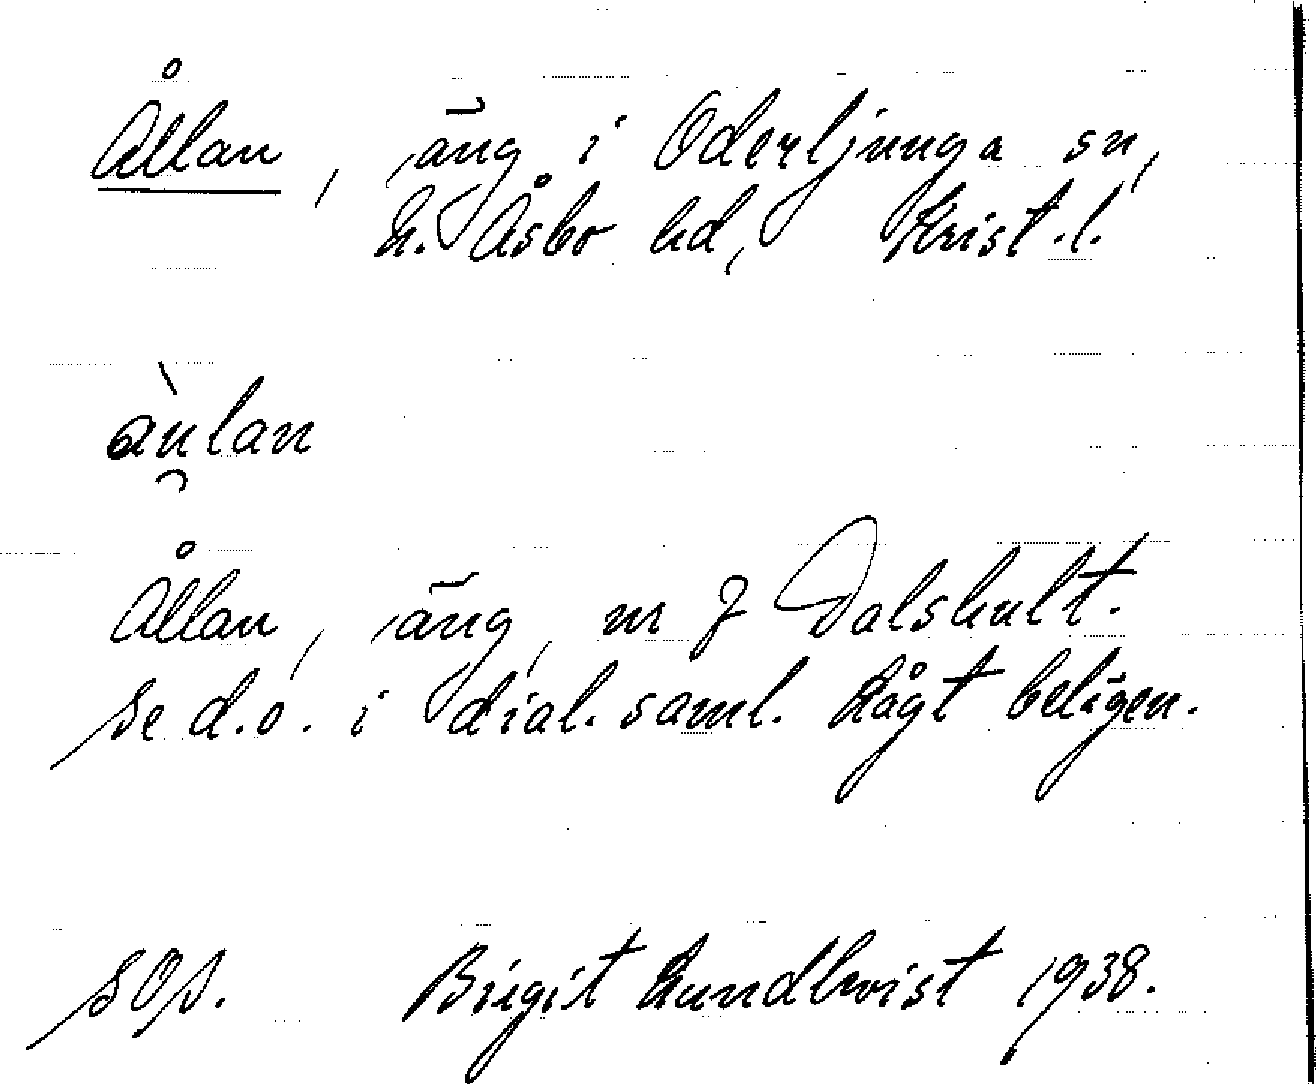 Ållan, äng i Oderljunga sn,
N. Åsbo hd, Krist. l.
Ållan, äng, m f Dalshult.
Se d.o. i dial. saml. Lågt belägen.
SOs. Birgit Lundkvist 1938.